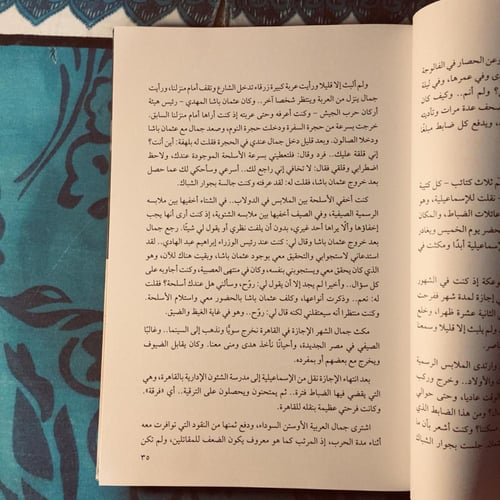 ولم ألبث إلا قليلا ورأيت عربة كبيرة زرقاء تدخل الشارع وتقف أمام منزلنا، ورأيت
جمال ينزل من العربة وينتظر شخصا آخر.. وكان عثمان باشا المهدي - رئيس هيئة
أركان حرب الجيش - وكنت أعرفه وحتى عربته إذ كنت أراها أمام منزلنا السابق.
خرجت بسرعة من حجرة السفرة ودخلت حجرة النوم، وصعد جمال مع عثمان باشا
ودخلا الصالون. وبعد قليل دخل جمال عندي في الحجرة فقلت له بلهفة: أين أنت؟
إني قلقة عليك.. فرد وقال: فلتعطيني بسرعة الأسلحة الموجودة عندك، ولاحظ
اضطرابي وقلقي فقال: لا تخافي إني راجع لك.. أسرعي وسأحكي لك عما حصل
بعد خروج عثمان باشا، فقلت له: لقد عرفته وكنت جالسة بجوار الشباك.
كنت أخفي الأسلحة بين الملابس في الدولاب.. في الشتاء أخفيها بين ملابسه
الرسمية الصيفي، وفي الصيف أخفيها بين ملابسه الشتوية، إذ كنت أرى أنها يجب
إخفاؤها وألا يراها أحد غيري، بدون أن يلفت نظري أو يقول لي شيئا. رجع جمال
بعد خروج عثمان باشا وقال لي: كنت عند رئيس الوزراء إبراهيم عبد الهادي.. لقد
استدعاني لاستجوابي والتحقيق معي بوجود عثمان باشا، وبقيت هناك للآن، وهو
الذي كان يحقق معي ويستجوبني بنفسه، وكان في منتهى العصبية، وكنت أجاوبه على
كل سؤال.. وأخيرا لم يجد إلا أن يقول لي: روّح، وسألني هل عندك أسلحة؟ فقلت
له: نعم.. وذكرت أنواعها، وكلف عثمان باشا بالحضور معي واستلام الأسلحة.
وكنت منتظرا أنه سيعتقلني لكنه قال لي: روّح.. وهو في غاية الغيظ والضيق.
مكث جمال الشهر الإجازة في القاهرة نخرج سويًّا ونذهب إلى السينما.. وغالبًا
الصيفي في مصر الجديدة، وأحيانًا نأخذ هدى ومنى معنا. وكان يقابل الضيوف
ويخرج مع بعضهم أو بمفرده.
بعد انتهاء الإجازة نقل من الإسماعيلية إلى مدرسة الشئون الإدارية بالقاهرة، وهي
التي يقضي فيها الضباط فترة.. ثم يمتحنون ويحصلون على الترقية.. أي «فرقة».
وكانت فرحتي عظيمة بنقله للقاهرة.
اشترى جمال العربية الأوستن السوداء، ودفع ثمنها من النقود التي توافرت معه
أثناء مدة الحرب، إذ المرتب كما هو معروف يكون الضعف للمقاتلين، ولم تكن
٣٥
وعن الحصار في الفالوجة
عدة مرات
- كل كتيبة
نقلت للإسماعيلية، وهو
عائلات الضباط، والمكان
يحضر يوم الخميس ويغادر
أبدًا ومكثت في
كنت في الشهور
إجازة لمدة شهر فرحت
الثانية عشرة ظهرا، وخلع
ولم يلبث إلا قليلا وسمعنا
وارتدى الملابس الرسمية
والأولاد.. ونخرج وركب
عاديا، وحتى حوالي
ومن هذا الضابط الذي
وكنت أشعر بأن ما
جلست بجوار الشباك